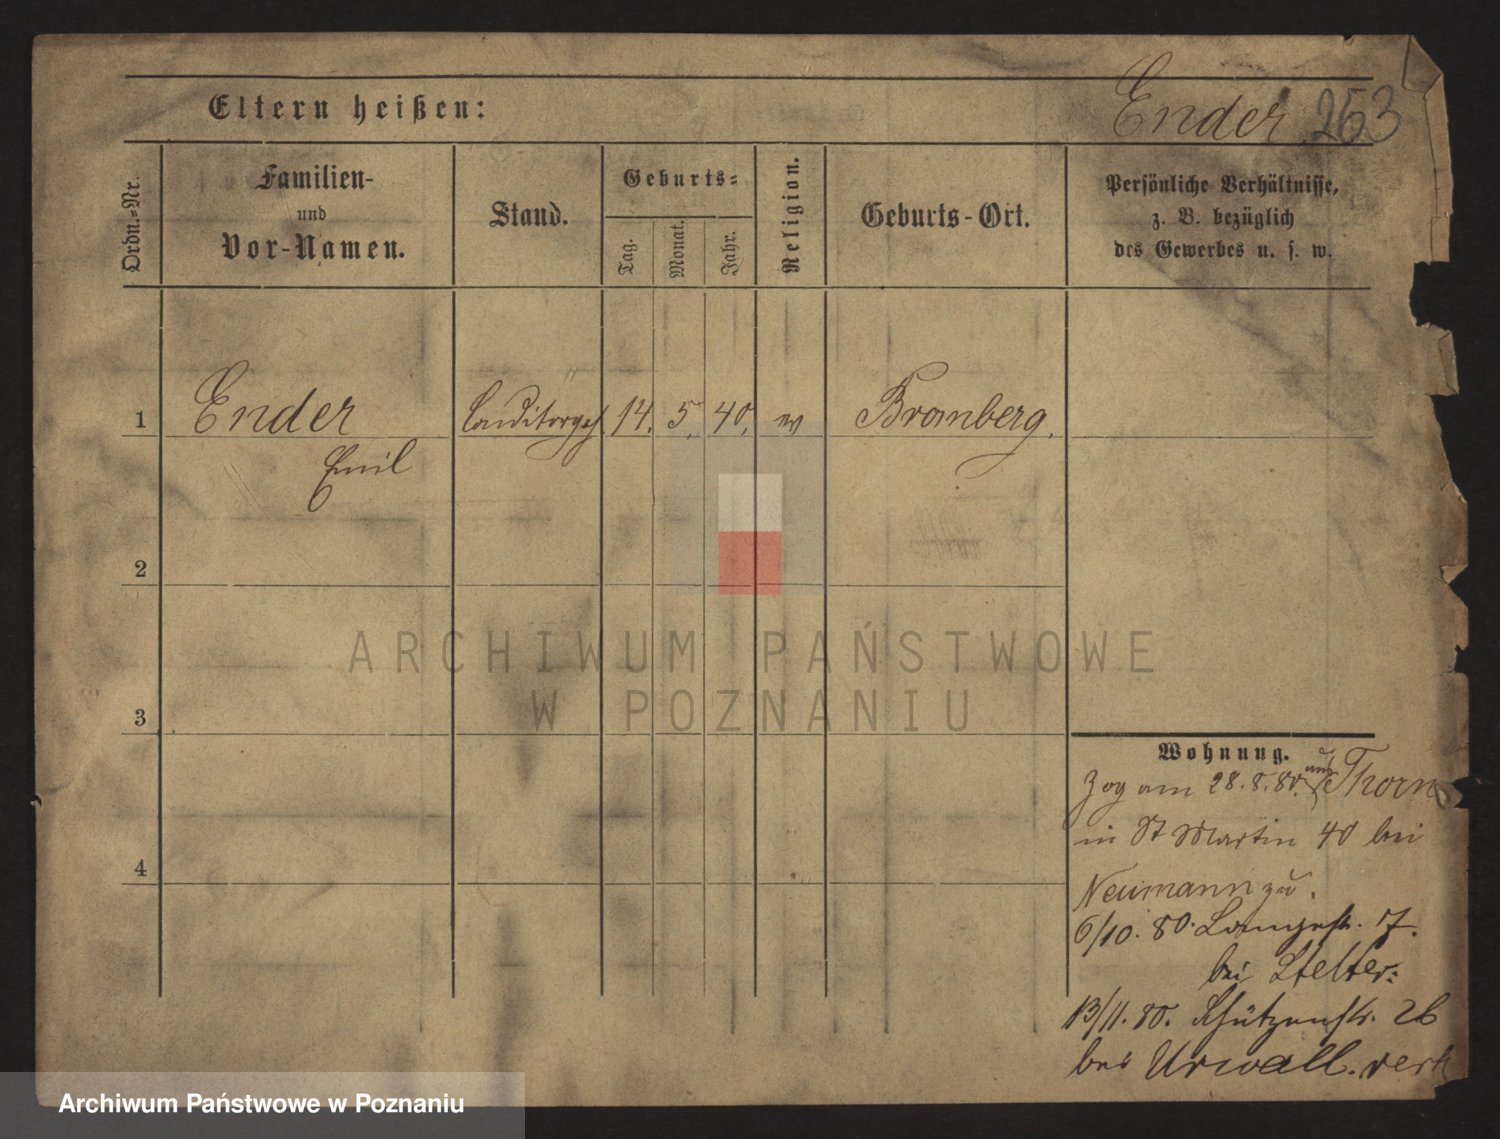 Eltern heißen:
Ender 253
Ordn.-Nr.
Familien-
und
Vor-Namen.
Stand.
Geburts-
Tag.
Monat.
Jahr.
Religion.
Geburts-Ort.
Persönliche Verhältnisse,
z. B. bezüglich
des Gewerbes u. s. w.
1 Ender Conditorgeh. 14. 5. 40.
Bromberg.
Emil
2
3
4
Wohnung.
Zog am 28.8.80. aus Thorn
in St Martin 40 bei
Neumann zu.
6/10. 80. Langestr. 7.
bei Stelter.
13/11. 80. Schützenstr. 26
bei Urwall.
ARCHIWUM PAŃSTWOWE
W POZNANIU
Archiwum Państwowe w Poznaniu